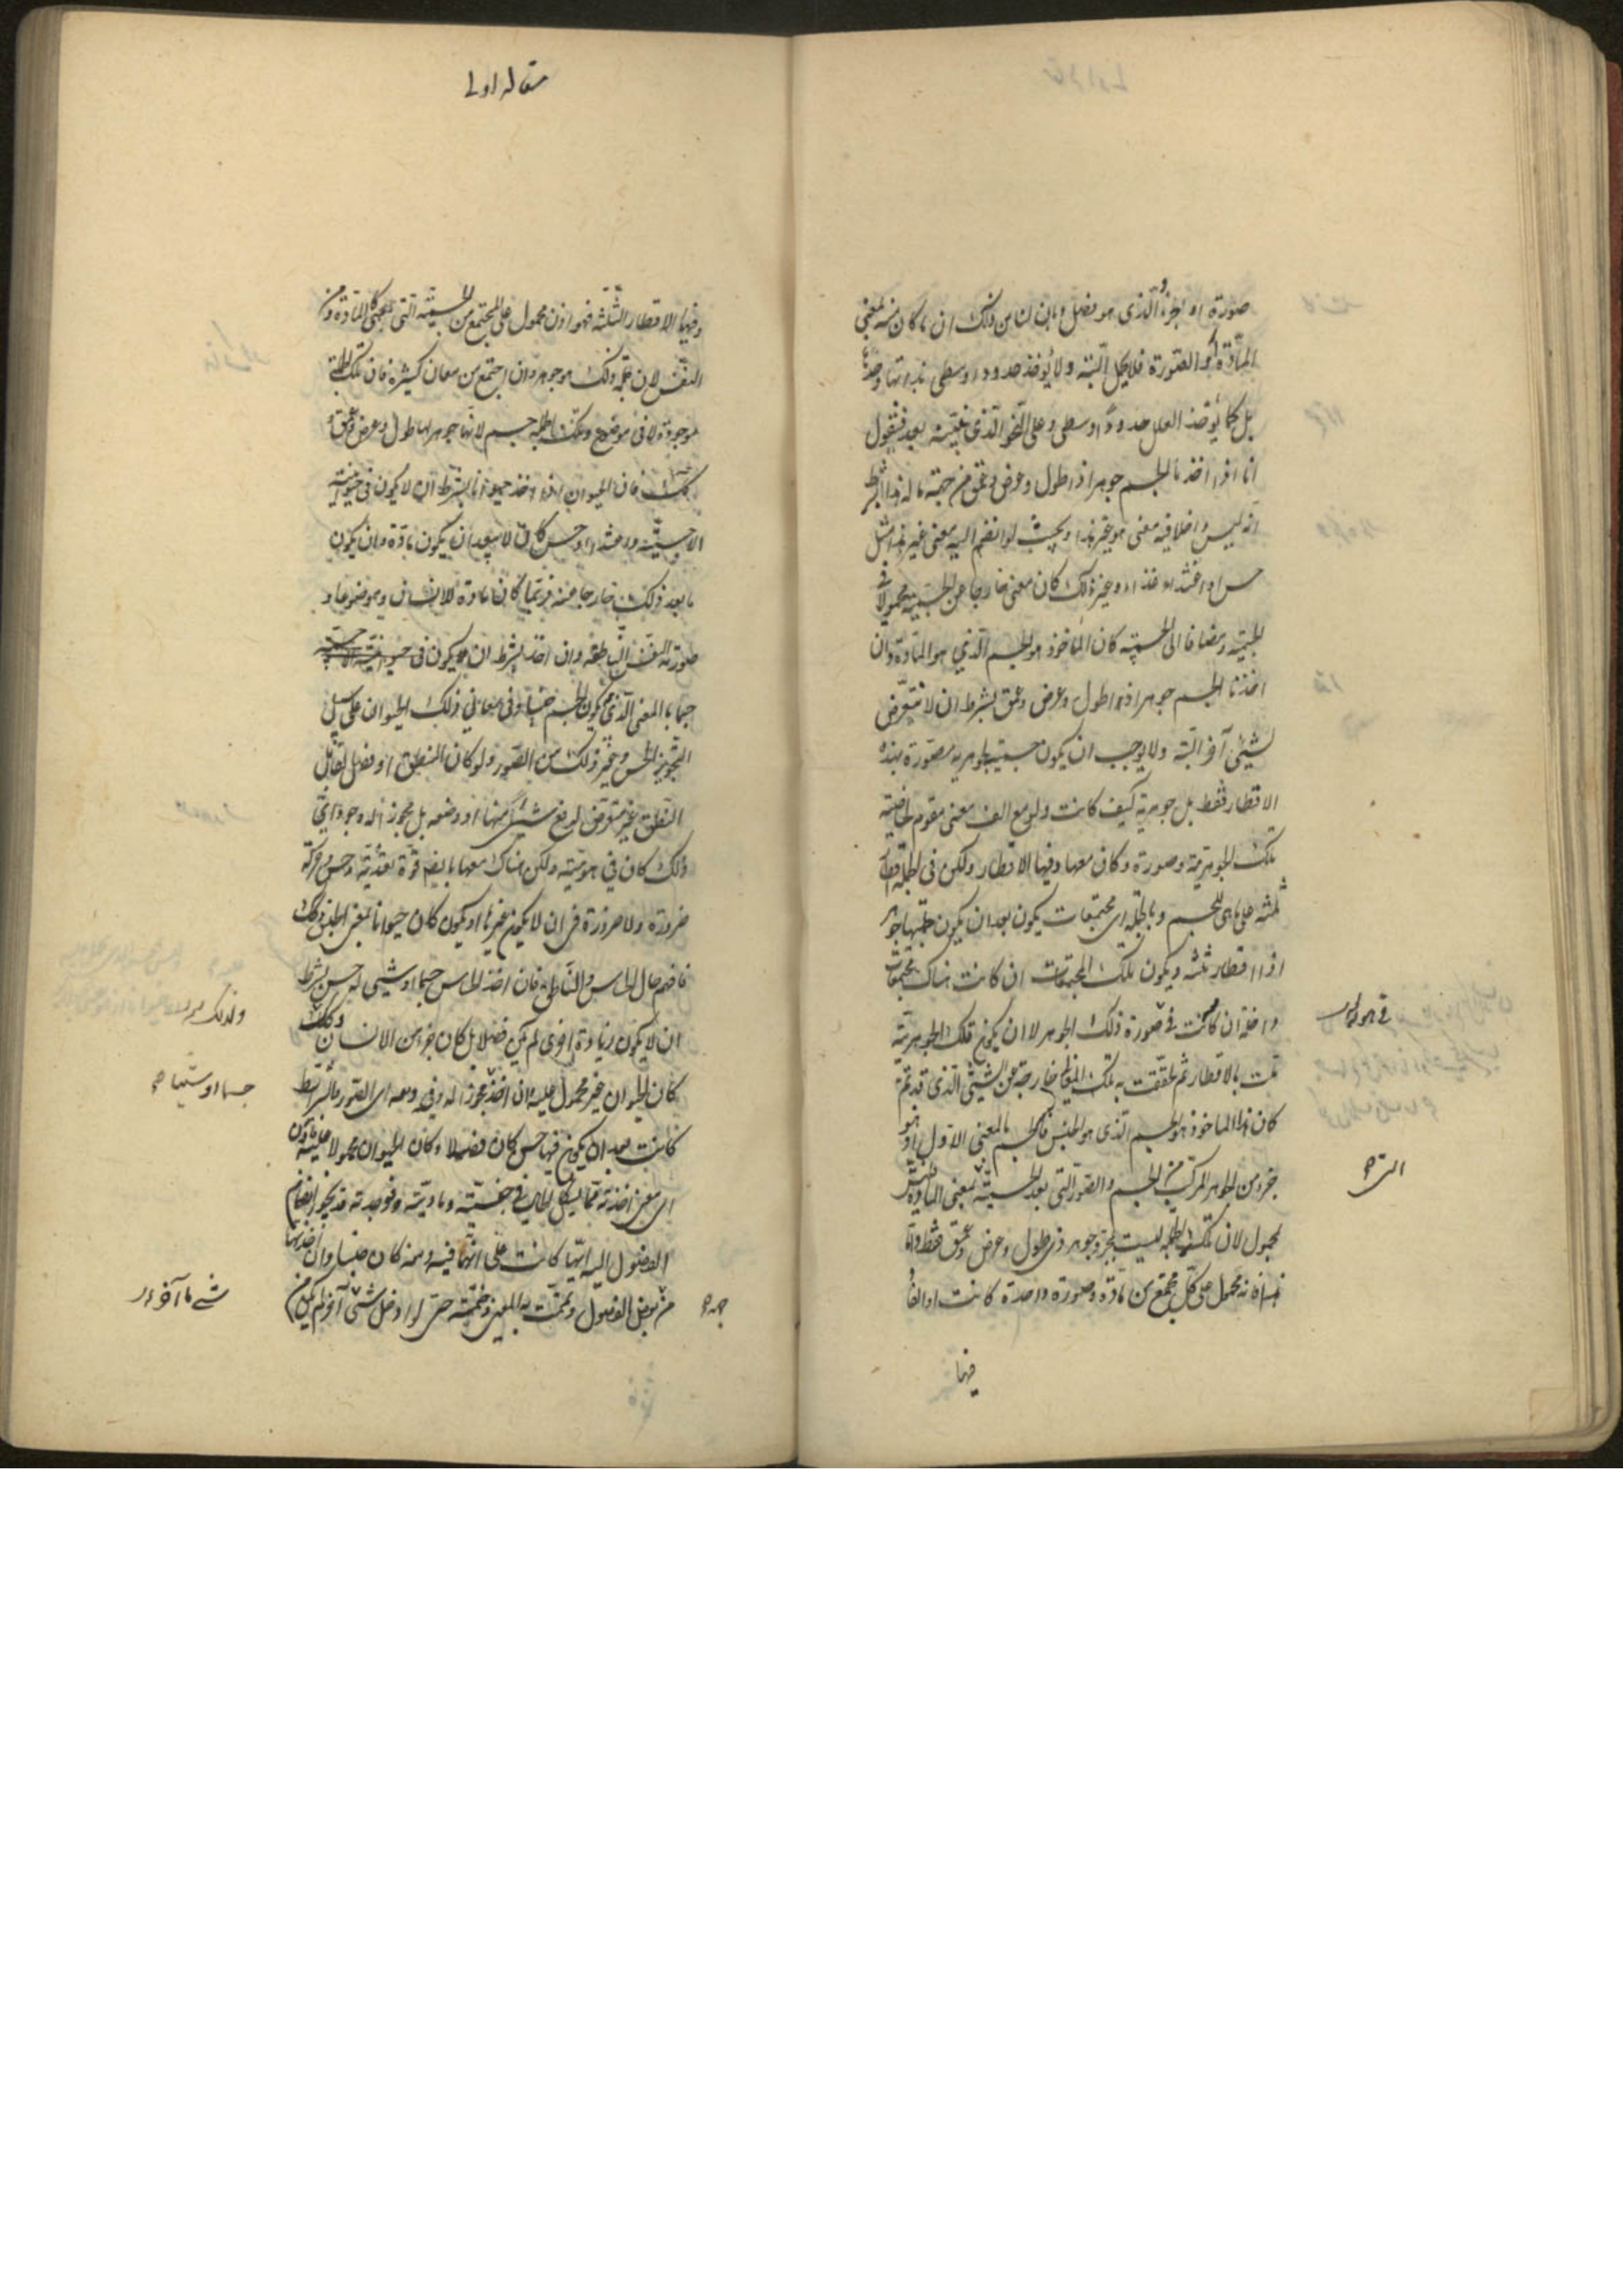 صورة او الجزء الذى هو فصل وبان لنا من ذلك ان ما كان منه بمعنى
المادة او الصورة فلا يحمل البتة ولا يؤخذ حدودا وسطى بذاتها وحدها
بل كما يؤخذ العلل حدودا وسطى وعلى النحو الذى نبينه بعد فنقول
انا اذا اخذنا الجسم جوهرا ذا طول وعرض وعمق من جهة ما له هذا بشرط
انه ليس داخلا فيه معنى هو غير هذا وبحيث لو انضم اليه معنى غير هذا مثل
حس او اغتذاء وغير ذلك كان معنى خارجا عن الجسمية محمولا فى
الجسمية ومضافا الى الجسمية كان المأخوذ هو الجسم الذى هو المادة وان
اخذنا الجسم جوهرا ذا طول وعرض وعمق بشرط ان لا نتعرض
لشىء آخر البتة ولا يوجب ان يكون جسمية لجوهرية مصورة بهذه
الاقطار فقط بل جوهرية كيف كانت ولو مع الف معنى مقوم لخاصية
تلك الجوهرية وصورة وكان معها وفيها الاقطار ولكن فى الجملة اقطار
ثلثة على ما هى للجسم وبالجملة اى مجتمعات يكون بعد ان يكون جملتها جوهرا
ذا اقطار ثلثة ويكون تلك المجتمعات ان كانت هناك مجتمعات
داخلة ان كانت فى صورة ذلك الجوهر لا ان يكون تلك الجوهرية
تمت بالاقطار ثم لحقت به تلك المعانى خارجة عن الشىء الذى قد تم
كان هذا المأخوذ هو الجسم الذى هو الجنس فالجسم بالمعنى الاول اذ هو
جزء من الجوهر المركب من الجسم والصور التى بعد الجسمية بمعنى المادة فليس
بمحمول لان تلك الجملة ليست بمجرد جوهر ذى طول وعرض وعمق فقط واما
هذا فانه محمول على كل مجتمع من مادة وصورة واحدة كانت او الفا
فيها
مقاله اولى
وفيها الاقطار الثلثة فهو اذن محمول على المجتمع من الجسمية التى كالمادة ومن
النفس لان جملة ذلك هو جوهر وان اجتمع من معان كثيرة فان تلك الجملة
موجودة لا فى موضوع وتلك الجملة جسم لانها جوهر لها طول وعرض وعمق و
كذلك فان الحيوان اذا اخذ حيوانا بشرط ان لا يكون فى حيوانيته
الا جسمية واغتذاء وحس كان لا يبعد ان يكون مادة وان يكون
ما بعد ذلك خارجا عنه فربما كان مادة للانسان وموضوعا و
صورته النفس الناطقة وان اخذ بشرط ان يكون فى
جسما بالمعنى الذى يكون الجسم جنسا وفى معانى ذلك الحيوان على سبيل
التجويز الحس وغير ذلك من الصور ولو كان النطق او فصل يقابل
النطق غير متعرض لرفع شىء منها او وضعه بل مجوزا له وجود اى
ذلك كان فى هويته ولكن هناك معها بالضرورة قوة تغذية وحس وحركة
ضرورة ولا ضرورة فى ان لا يكون غيرها او يكون كان حيوانا بمعنى الجنس وكذلك
فافهم حال الحساس والناطق فان اخذ الحساس جسما او شىء له حس بشرط
ان لا يكون زيادة اخرى لم يكن فصلا بل كان جزءا من الانسان وكذلك
كان الحيوان غير محمول عليه وان اخذ مجوزا له وفيه ومعه اى الصور والشرائط
كانت بعد ان يكون فيها حس كان فصلا وكان الحيوان محمولا عليه فاذن
اى معنى اخذته مما يشكل الحال فى جنسيته وماديته فوجدته قد يجوز انضمام
الفصول اليه ايها كانت على انها فيه ومنه كان جنسا وان اخذتها
من بعض الفصول وتممت به المعنى وختمته حتى لو ادخل شىء آخر لم يكن من